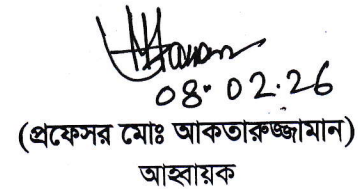 08.02.26
(প্রফেসর মোঃ আকতারুজ্জামান)
আহবায়ক